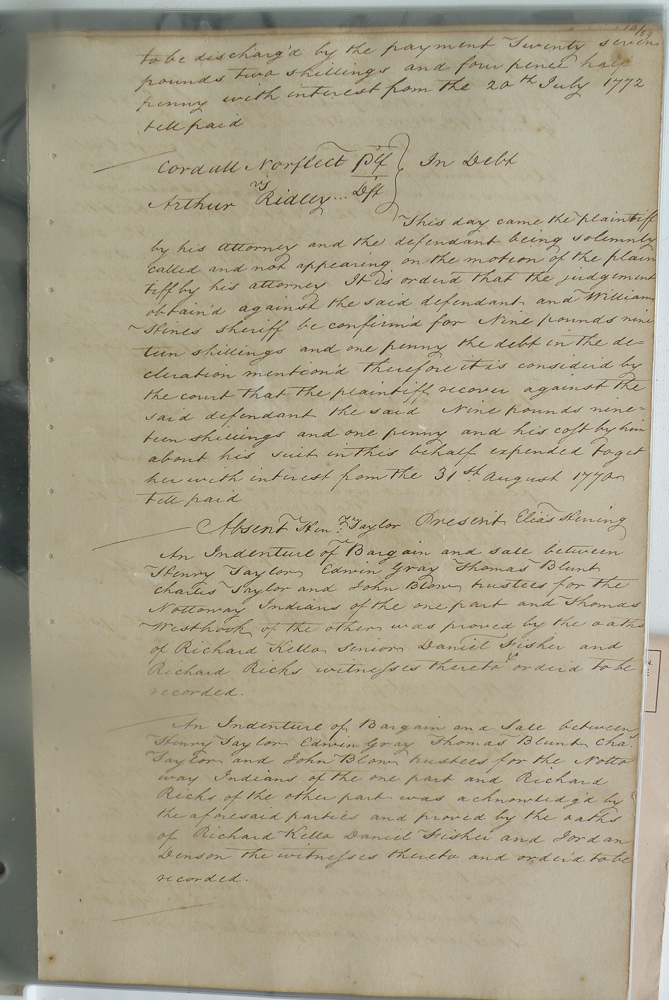 to be discharg'd by the payment Twenty seven
pounds two shillings and four pence half
penny with interest from the 20th July 1772
till paid
Cordall Norflect Plf } In Debt
vs
Arthur Ridley... Dft
This day came the plaintiff
by his attorney and the defendant being solemnly
called and not appearing on the motion of the plain
tiff by his attorney It is orderd that the judgement
obtain'd against the said defendant and William
Hines sheriff be confirm'd for Nine pounds nine
teen shillings and one penny the debt in the de=
cleration mention'd therefore it is considerd by
the court that the plaintiff recover against the
said defendant the said Nine pounds nine=
teen shillings and one penny and his cost by him
about his suit in this behalf expended toget
her with interest from the 31st August 1770
till paid
Absent Hen: Taylor Present Elias Hering
An Indenture of Bargain and sale between
Henry Taylor Edwin Gray Thomas Blunt
Charles Taylor and John Blow trustees for the
Nottoway Indians of the one part and Thomas
Westbrook of the other was proved by the oaths
of Richard Kello senior Daniel Fisher and
Richard Ricks witnesses thereto & orderd to be
recorded.
An Indenture of Bargain and Sale between
Henry Taylor Edwin Gray Thomas Blunt Cha.
Taylor and John Blow trustees for the Notto
way Indians of the one part and Richard
Ricks of the other part was acknowledg'd by
the aforesaid parties and proved by the oaths
of Richard Kello Daniel Fisher and Jordan
Denson the witnesses thereto and orderd to be
recorded.